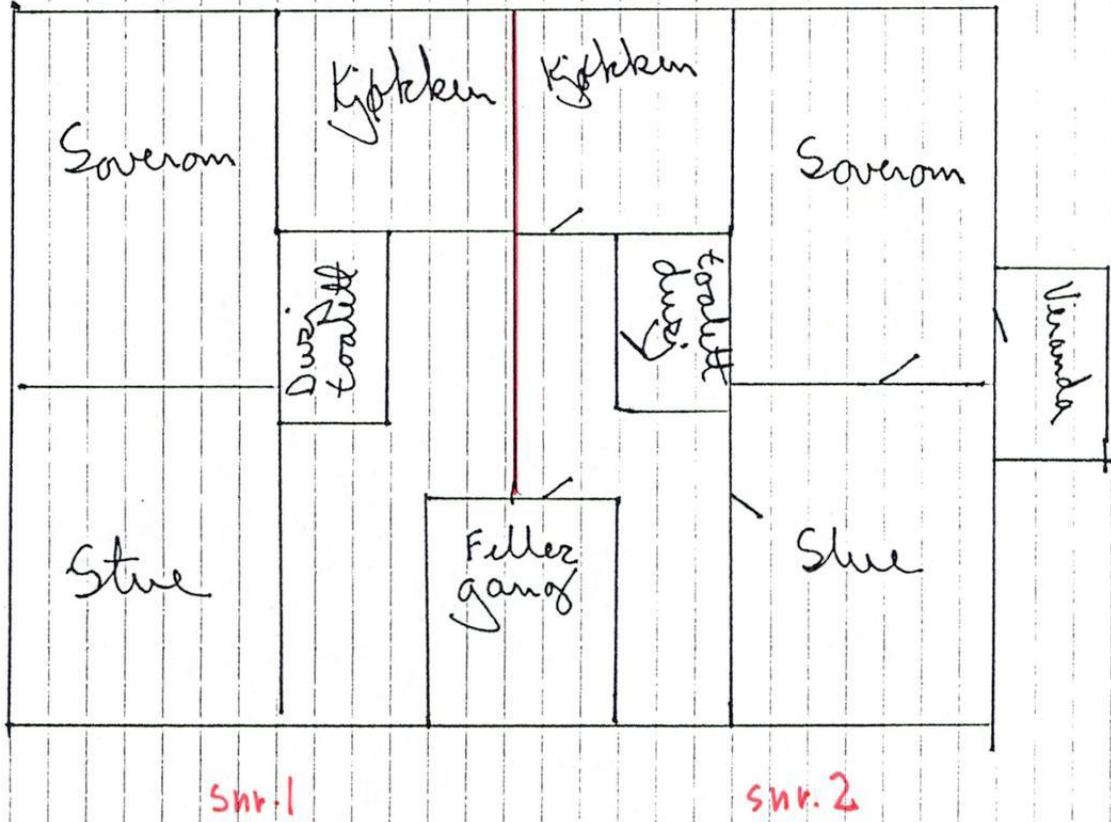 Kjøkken
Kjøkken
Soverom
Soverom
Dusj
toalett
toalett
dusj
Veranda
Stue
Felles
gang
Stue
snr.1
snr.2